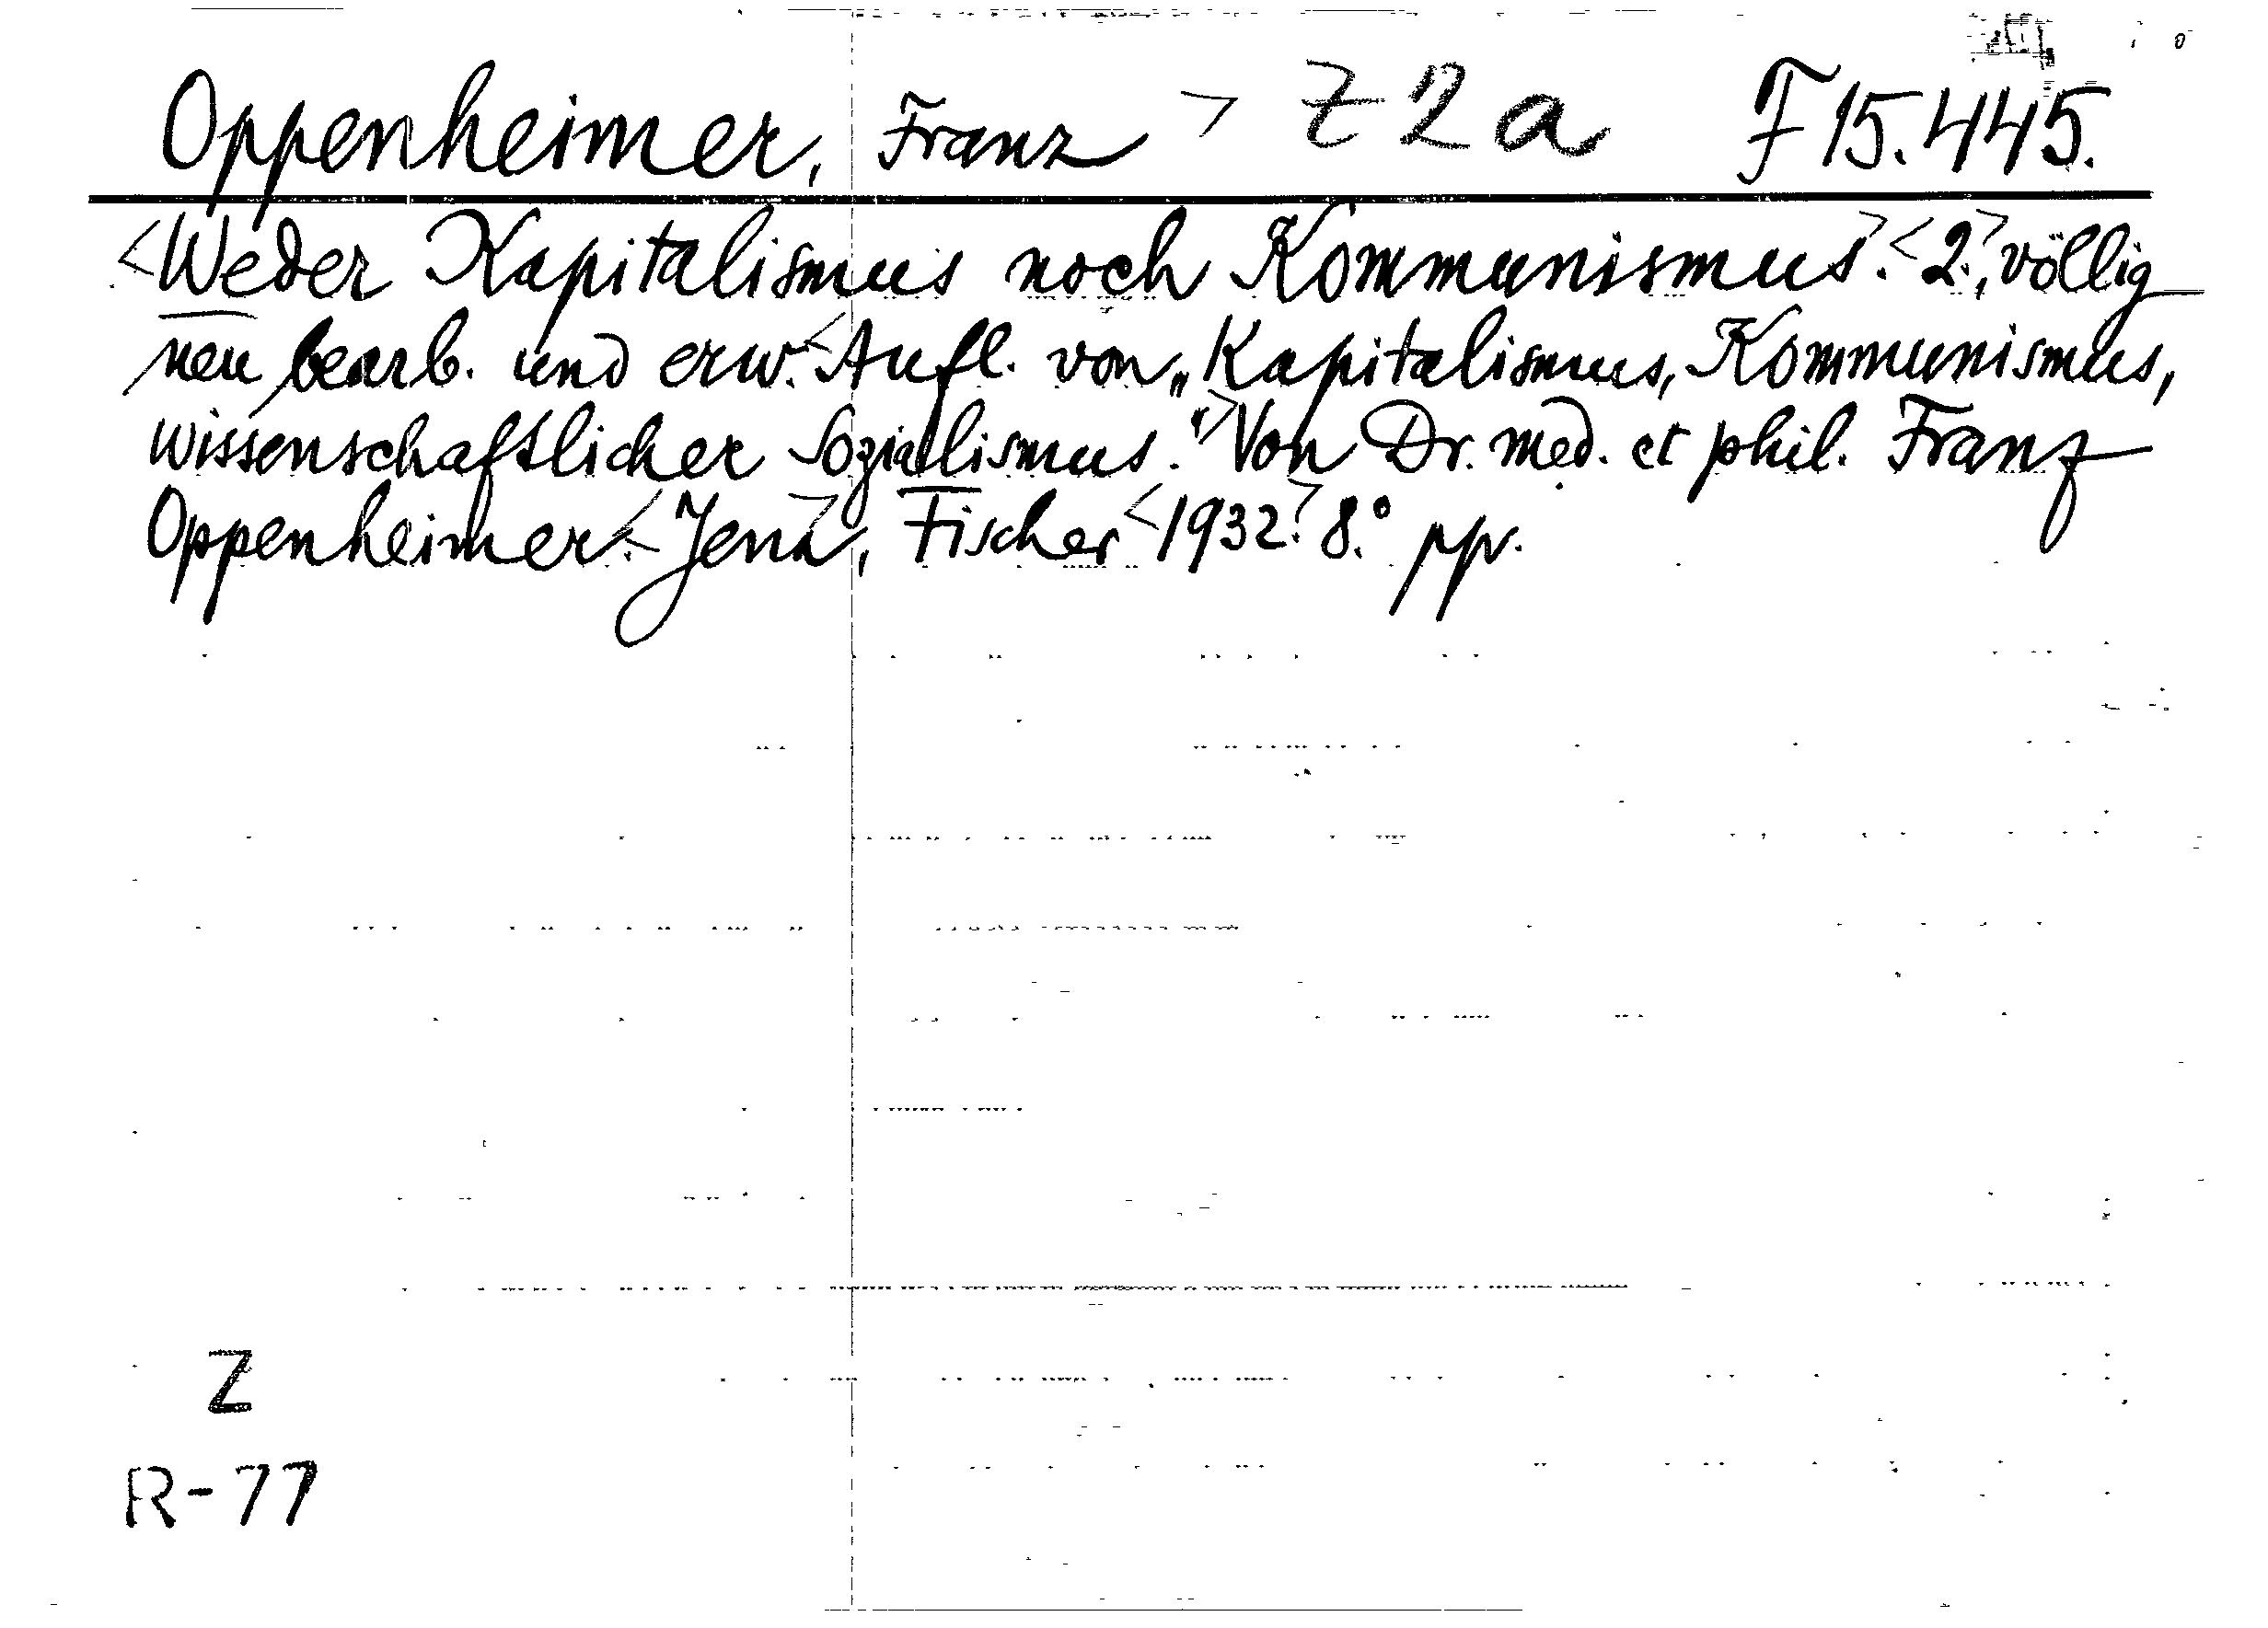 Oppenheimer, Franz > Z 2 a F 15.445.
<Weder Kapitalismus noch Kommunismus>. <2.>, völlig
neu bearb. und erw. <Aufl. von „Kapitalismus, Kommunismus,
wissenschaftlicher Sozialismus."> Von Dr. med. et phil. Franz
Oppenheimer. <Jena>, Fischer <1932.> 8.° pp.
Z
R-77